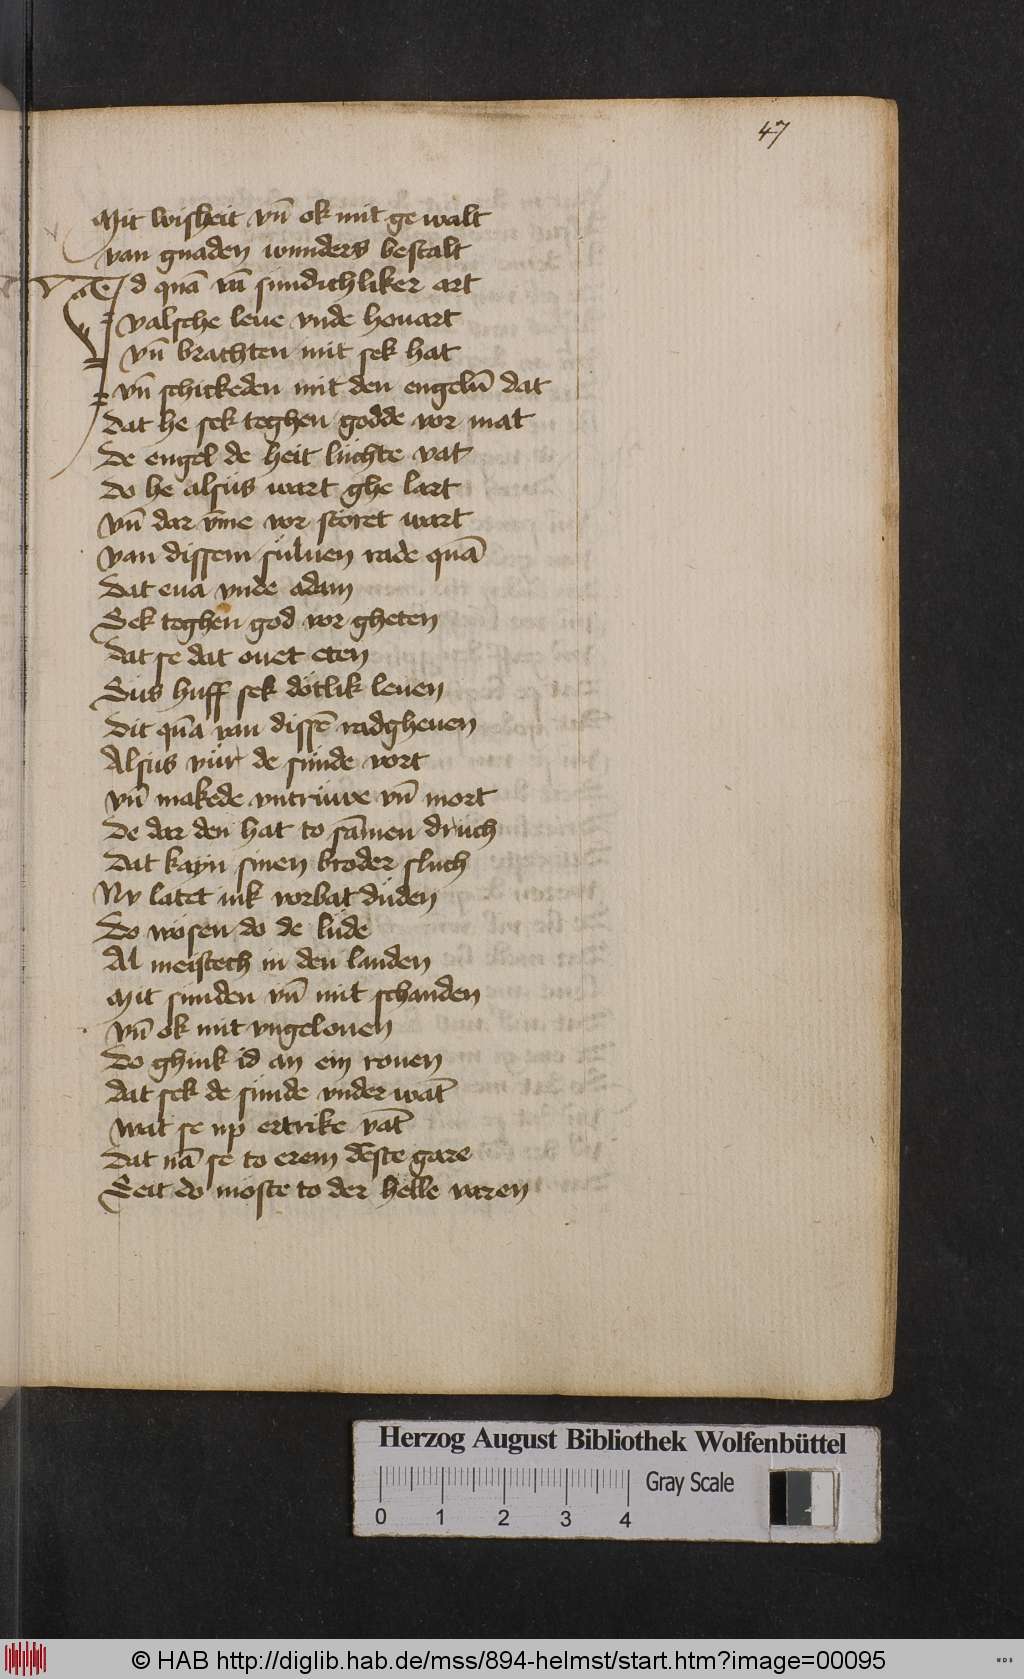 47
Mit wisheit vn̄ ok mit ge walt
van gnaden wunders bestalt
Id quā vā sundichliker art
valsche leue vnde houart
vn̄ brachten mit sek hat
vn̄ schickeden mit den engelū dat
Dat he sek teghen godde vor mat
De engel de heit lüchte vat
Do he alsüs wart ghe lart
vn̄ dar v̄me vor störet wart
van dissem süluen rade quā
Dat eua vnde adam
Sek teghen god vor gheten
Dat se dat ouet eten
Sus huff sek dötlik leuen
Dit quā van dissē radgheuen
Alsus vür de sünde vort
vn̄ makede vntruwe vn̄ mort
De dar den hat to sāmen druch
Dat kayn sinen broder sluch
Nv latet iuk vorbat düden
Do wösen do de lüde
Al meistech in den landen
Mit sunden vn̄ mit schanden
vn̄ ok mit vngelouen
Do ghink id an ein rouen
Dat sek de sunde vnder wāt
wat se up ertrike vāt
Dat nā se to erem deste gare
Seit do moste to der helle varen
Herzog August Bibliothek Wolfenbüttel
Gray Scale
0 1 2 3 4
© HAB http://diglib.hab.de/mss/894-helmst/start.htm?image=00095